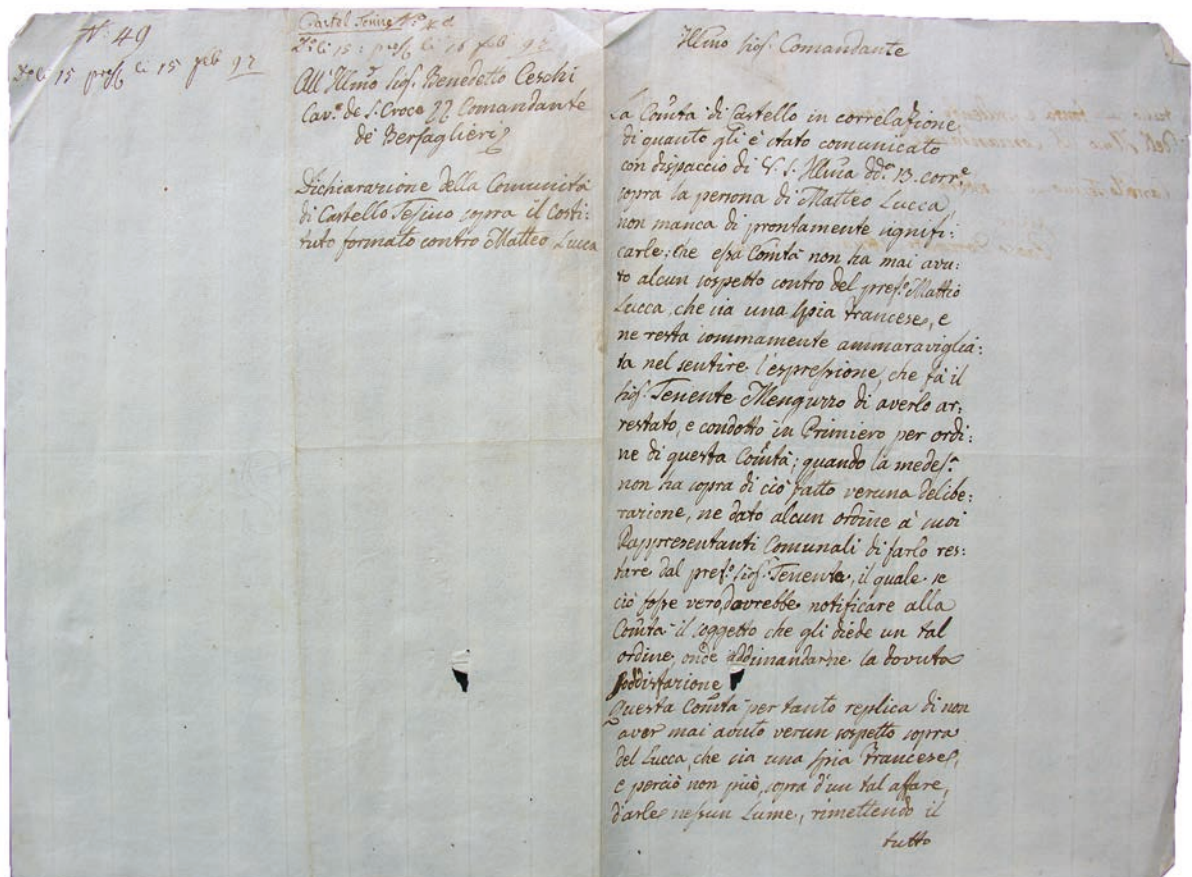 N: 49
li 15 pres. li 15 feb 97
Castel Tesino N:
li 15: pres. li 16 feb 97
All' Illmo Sig. Benedetto Ceschi
Cav.e de S. Croce Comandante
de' Bersaglieri
Dichiarazione della Comunità
di Castello Tesino sopra il Costi:
tuto formato contro Matteo Lucca
Illmo Sig. Comandante
La Comtà di Castello in correlazione
di quanto gli è stato comunicato
con dispaccio di V. S. Illma dd.o 13. corr.e
sopra la persona di Matteo Lucca
non manca di prontamente signifi:
carle: che essa Comtà non ha mai avu:
to alcun sospetto contro del pref.o Mattio
Lucca, che sia una spia Francese, e
ne resta sommamente ammaraviglia:
ta nel sentire l'espressione, che fà il
Sig. Tenente Menguzzo di averlo ar:
restato, e condotto in Primiero per ordi:
ne di questa Comtà; quando la medes.a
non ha sopra di ciò fatto veruna delibe:
razione, ne dato alcun ordine a' suoi
Rappresentanti Comunali di farlo res:
tare dal pref.o Sig. Tenente, il quale se
ciò fosse vero, dovrebbe notificare alla
Comtà il soggetto che gli diede un tal
ordine, onde addimandarne la dovuta
soddisfazione
Questa Comtà per tanto replica di non
aver mai avuto verun sospetto sopra
del Lucca, che sia una spia Francese,
e perciò non può, sopra d'un tal affare,
darle nessun Lume, rimettendo il
tutto